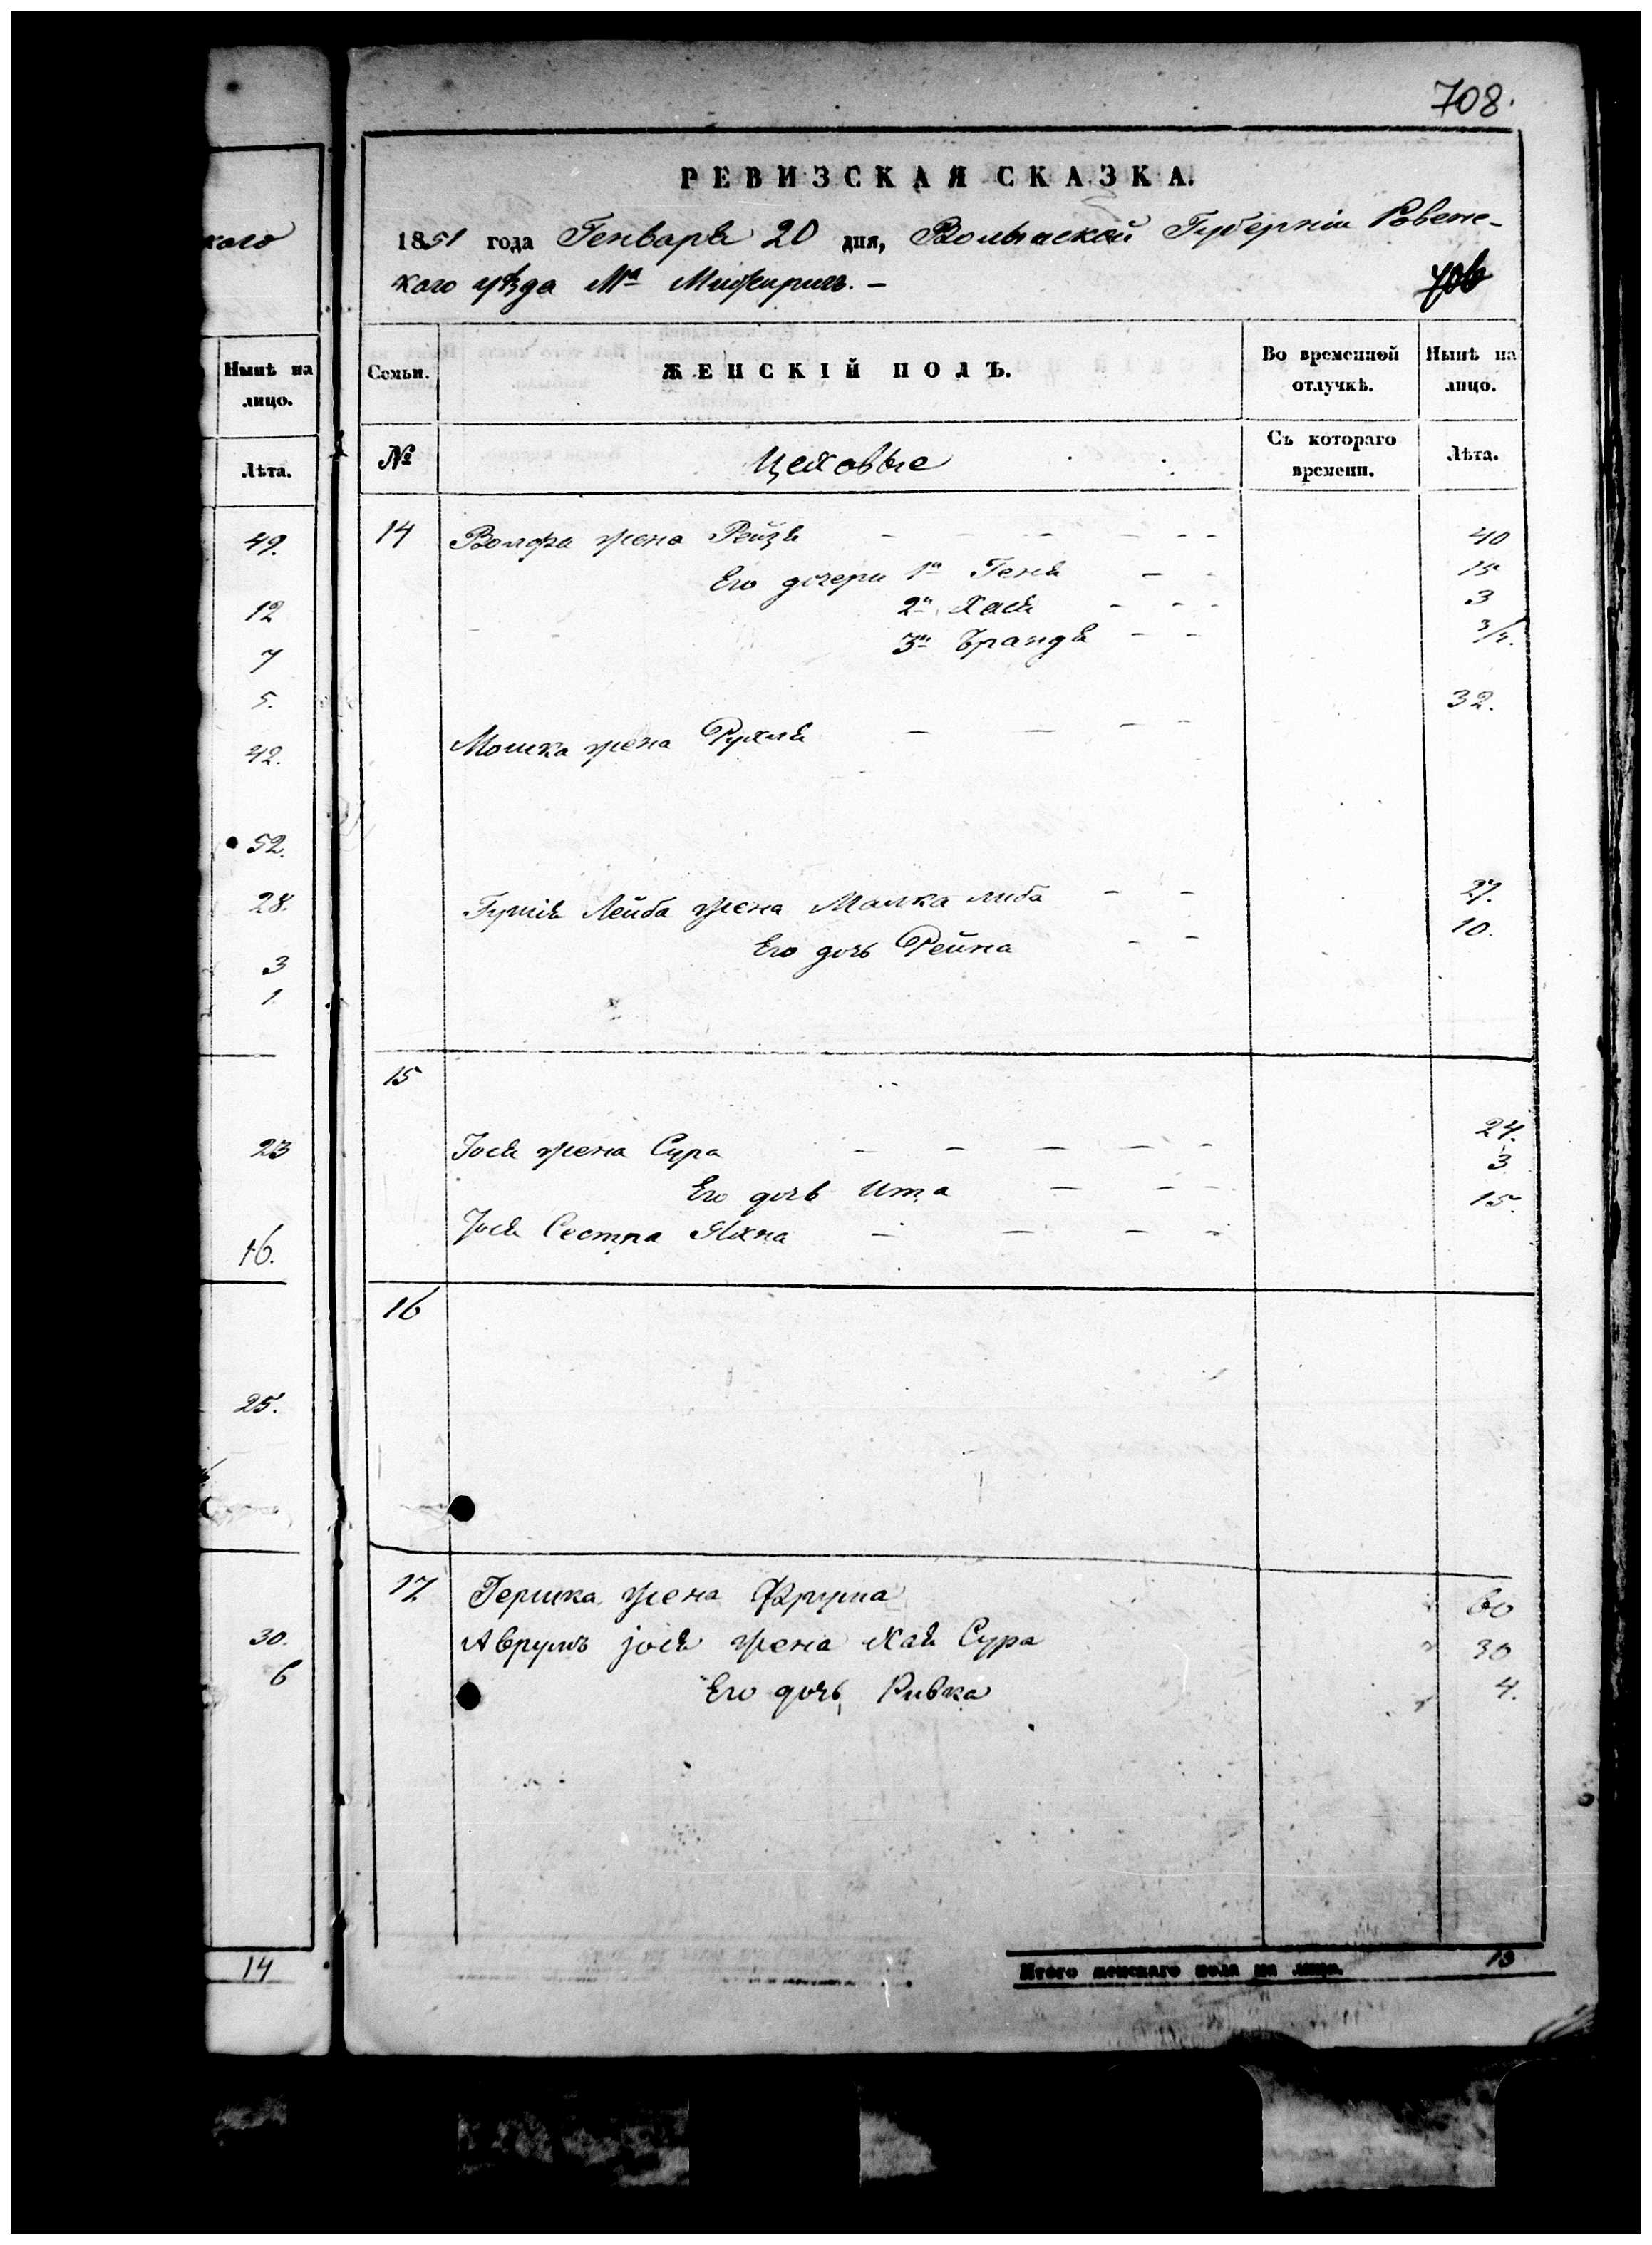 каго
Нынѣ на
лицо.
Лѣта.
49.
12
7
5.
42.
52.
28.
3
1
23
16.
25.
30.
6
14
708.
РЕВИЗСКАЯ СКАЗКА.
1851 года Генваря 20 дня, Волынской Губерніи Ровенс-
каго уѣзда Мⁿ Межиричъ. –
706
Семьи.
ЖЕНСКІЙ ПОЛЪ.
Во временной
отлучкѣ.
Нынѣ на
лицо.
№
Цеховые
Съ котораго
времени.
Лѣта.
14 Волфа жена Рейзя – – – – – – 40
Его дочери 1ⁿ Геня – – 15
2ⁿ Хася – – – 3
3ⁿ Брандя – – 3/4.
Мошка жена Рухля – – – – 32.
Гушія Лейба жена Малка либа – – 27.
Его дочь Рейна – – 10.
15
Іося жена Сура – – – – – 24.
Его дочь Ита – – – 3
Іося Сестра Яхна – – – – 15.
16
17. Гершка жена Фрума 60
Аврумъ іося жена Хая Сура 30
Его дочь Ривка 4.
Итого женскаго пола на лицо. 13